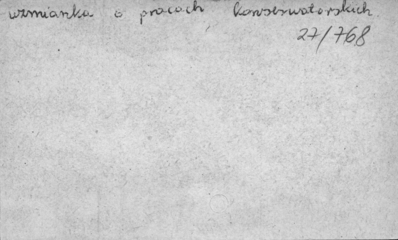 wzmianka o pracach konserwatorskich.
27/768